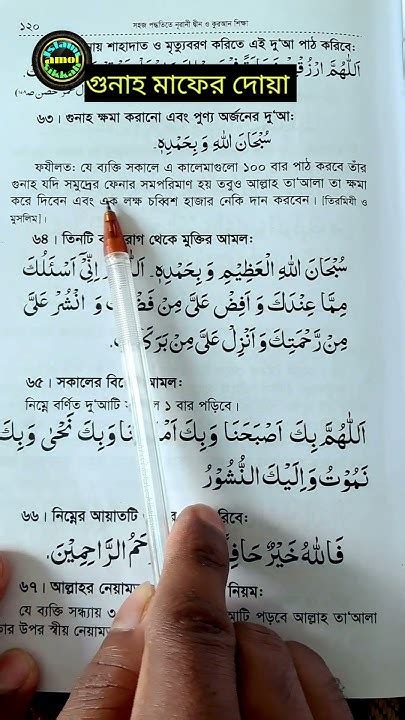 ১২০ সহজ পদ্ধতিতে নূরানী দ্বীন ও কুরআন শিক্ষা
islamic amol sikkah
শাহাদাত ও মৃত্যুবরণ করিতে এই দু'আ পাঠ করিবে:
গুনাহ মাফের দোয়া
৬৩। গুনাহ ক্ষমা করানো এবং পুণ্য অর্জনের দু'আ:
سُبْحَانَ اللهِ وَ بِحَمْدِهٖ.
ফযীলত: যে ব্যক্তি সকালে এ কালেমাগুলো ১০০ বার পাঠ করবে তাঁর
গুনাহ যদি সমুদ্রের ফেনার সমপরিমাণ হয় তবুও আল্লাহ তা'আলা তা ক্ষমা
করে দিবেন এবং এক লক্ষ চব্বিশ হাজার নেকি দান করবেন। [তিরমিযী ও
মুসলিম]।
৬৪। তিনটি রোগ থেকে মুক্তির আমল:
سُبْحَانَ اللهِ الْعَظِيْمِ وَ بِحَمْدِهٖ. اِنِّىْ اَسْئَلُكَ
مِمَّا عِنْدَكَ وَ اَفِضْ عَلَىَّ مِنْ وَ انْشُرْ عَلَىَّ
مِنْ رَّحْمَتِكَ وَ اَنْزِلْ عَلَىَّ مِنْ
৬৫। সকালের আমল:
নিম্নে বর্ণিত দু'আটি ১ বার পড়িবে।
اَللّٰهُمَّ بِكَ اَصْبَحْنَا وَبِكَ وَبِكَ نَحْىٰ وَبِكَ
نَمُوْتُ وَاِلَيْكَ النُّشُوْرُ
৬৬। নিম্নের আয়াতটি
فَاللهُ خَيْرٌ الرَّاحِمِيْنَ.
৬৭। আল্লাহর নিয়ম:
যে ব্যক্তি সন্ধ্যায় পড়বে আল্লাহ তা'আলা
উপর স্বীয়